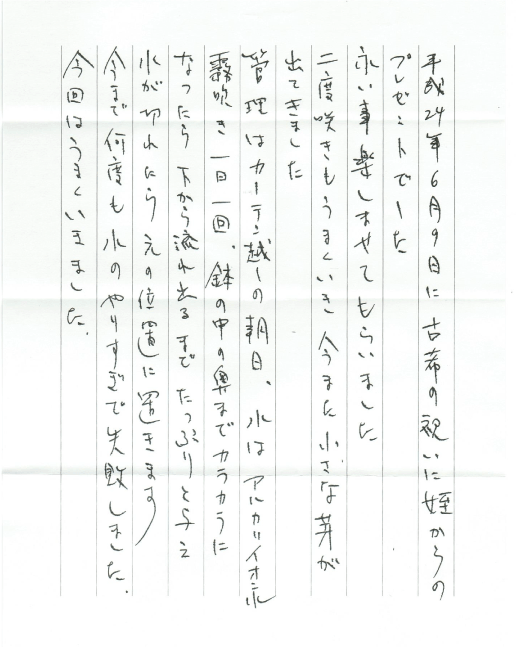 平成24年6月9日に古希の祝いに姪からの
プレゼントでした
永い事楽しませてもらいました
二度咲きもうまくいき今また小さな芽が
出てきました
管理はカーテン越しの朝日、水はアルカリイオン水
霧吹き一日一回、鉢の中の奥までカラカラに
なったら下から流れ出るまでたっぷりと与え
水が切れたら元の位置に置きます
今まで何度も水のやりすぎで失敗しました。
今回はうまくいきました。